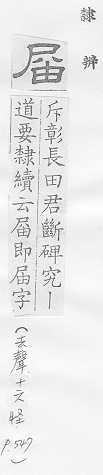 隸辨
届
斥彰長田君斷碑究丨
道要隸續云届即届字
(去聲十六怪 P.547)